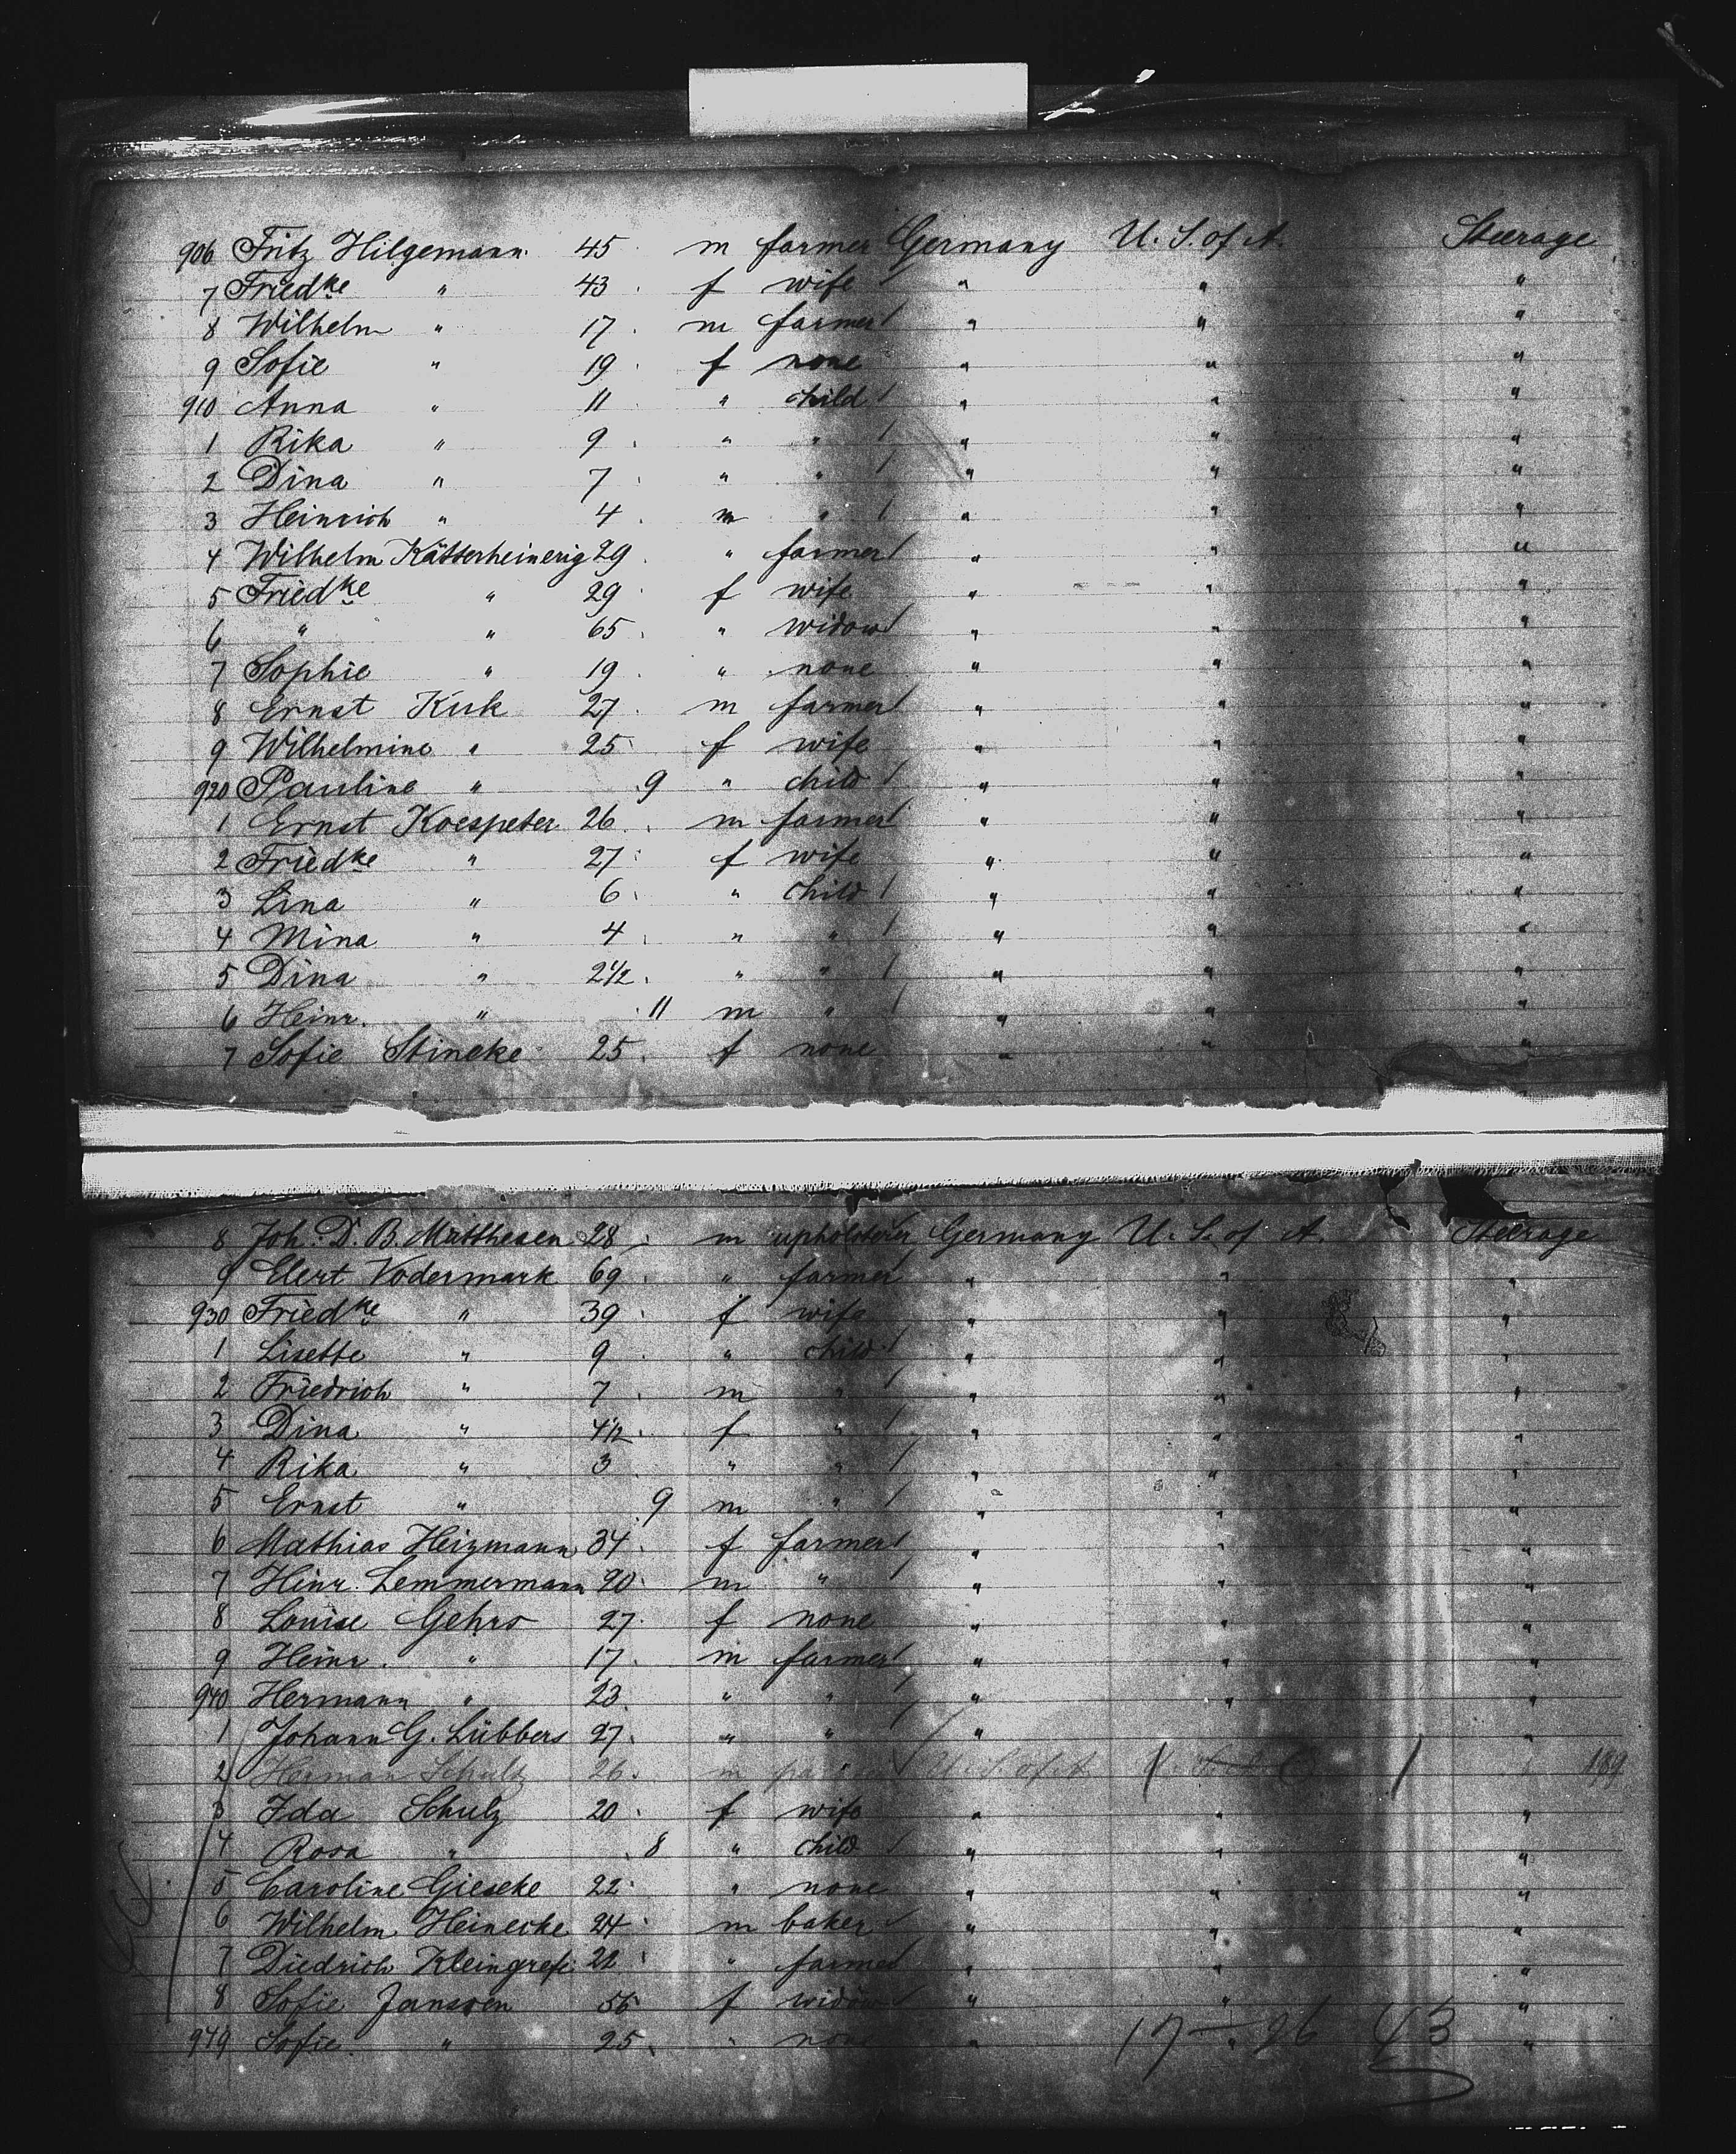 906 Fritz Hilgemann 45 m farmer Germany U. S. of A. Steerage
7 Friedke " 43 f wife " " "
8 Wilhelm " 17 m farmer " " "
9 Sofie " 19 f none " " "
910 Anna " 11 " child " " "
1 Rika " 9 " " " " "
2 Dina " 7 " " " " "
3 Heinrich " 4 m " " " "
4 Wilhelm Kätterheinerig 29 " farmer " " "
5 Friedke " 29 f wife " " "
6 " " 65 " widow " " "
7 Sophie " 19 " none " " "
8 Ernst Kuk 27 m farmer " " "
9 Wilhelmine " 25 f wife " " "
920 Pauline " 9 " child " " "
1 Ernst Koespeter 26 m farmer " " "
2 Friedke " 27 f wife " " "
3 Lina " 6 " child " " "
4 Mina " 4 " " " " "
5 Dina " 2 1/2 " " " " "
6 Heinr. " 11 m " " " "
7 Sofie Stineke 25 f none " " "
8 Joh. D. B. Matthesen 28 m upholsterer Germany U. S. of A. Steerage
9 Elert Vodermark 69 " farmer " " "
930 Friedke " 39 f wife " " "
1 Lisette " 9 " child " " "
2 Friedrich " 7 m " " " "
3 Dina " 4 1/2 f " " " "
4 Rika " 3 " " " " "
5 Ernst " 9 m " " " "
6 Mathias Heizmann 34 f farmer " " "
7 Heinr. Lemmermann 20 m " " " "
8 Louise Gehrs 27 f none " " "
9 Heinr. " 17 m farmer " " "
940 Hermann " 23 " " " " "
1 Johann G. Lübbers 27 " " "
2 Herman Schultz 26 m U. S. of A. 189
3 Ida Schulz 20 f wife " " "
4 Rosa " 8 " child " " "
5 Caroline Gieseke 22 " none " " "
6 Wilhelm Heinecke 24 m baker " " "
7 Diedrich Kleingrefe 22 " farmer " " "
8 Sofie Janssen 56 f widow " " "
949 Sofie " 25 " none " " "
17 — 26 43